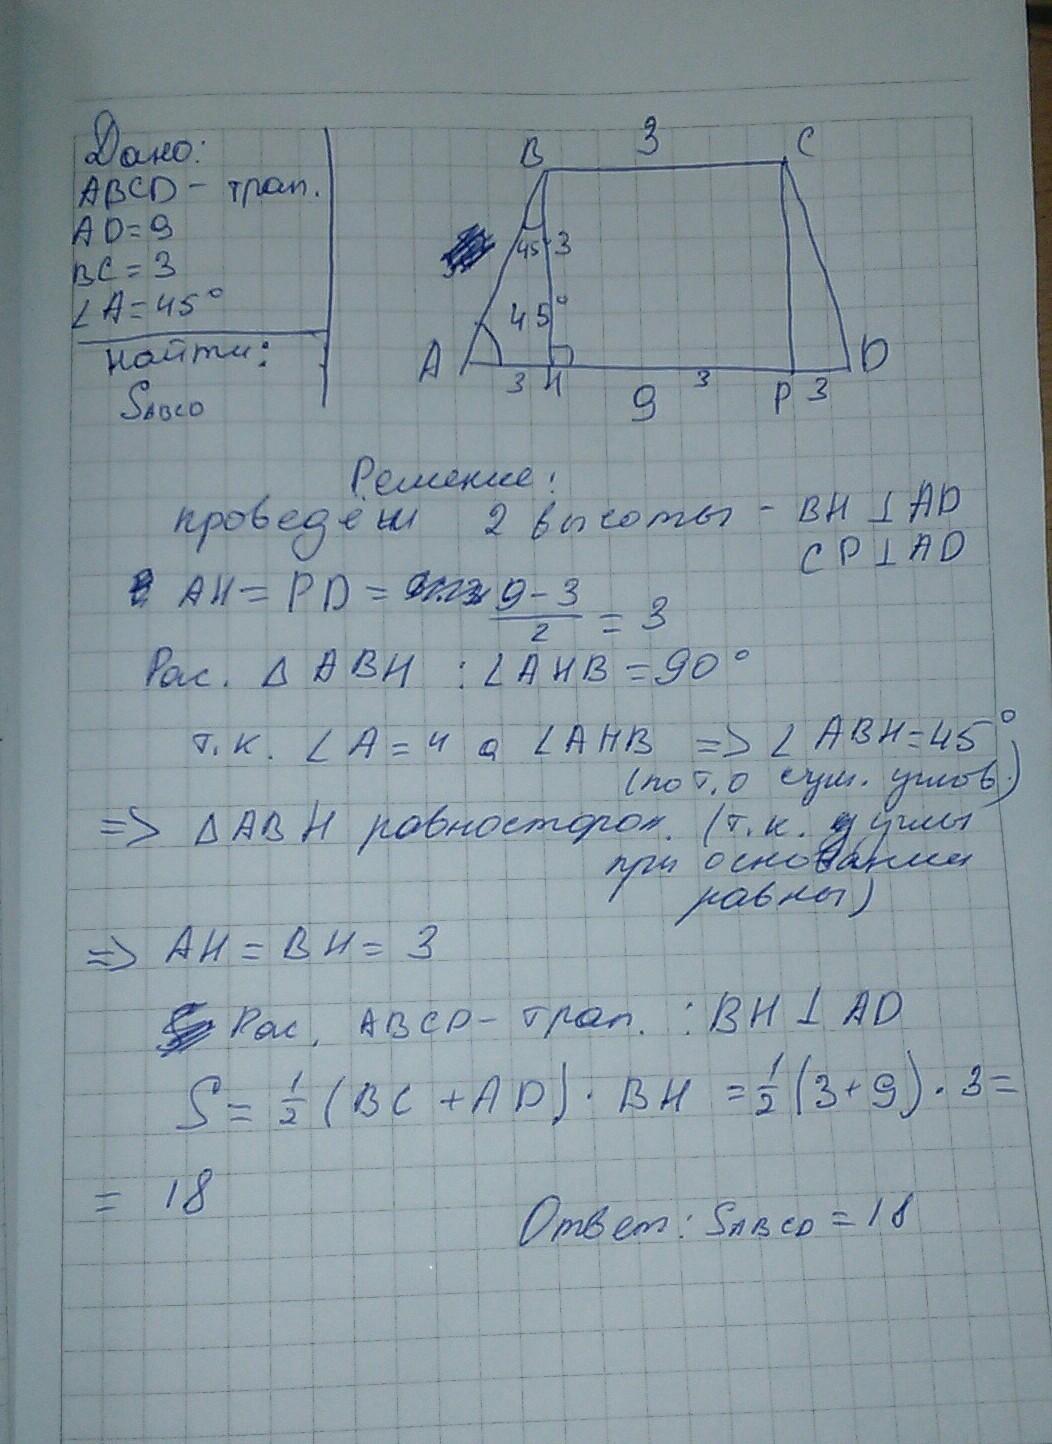 Дано:
ABCD - трап.
AD=9
BC=3
∠A=45°
Найти:
SABCD
B 3 C
45° 3
45°
A 3 H 9 3 P 3 D
Решение:
проведём 2 высоты - BH ⊥ AD
CP ⊥ AD
AH = PD = 9-3/2 = 3
Рас. Δ ABH : ∠AHB = 90°
т.к. ∠A = 4 а ∠AHB => ∠ABH=45°
(по т. о сум. углов.)
=> ΔABH равносторон. (т.к. углы
при основании
равны)
=> AH = BH = 3
Рас. ABCD - трап. : BH ⊥ AD
S = 1/2 (BC + AD) · BH = 1/2 (3+9) · 3 =
= 18
Ответ: SABCD = 18